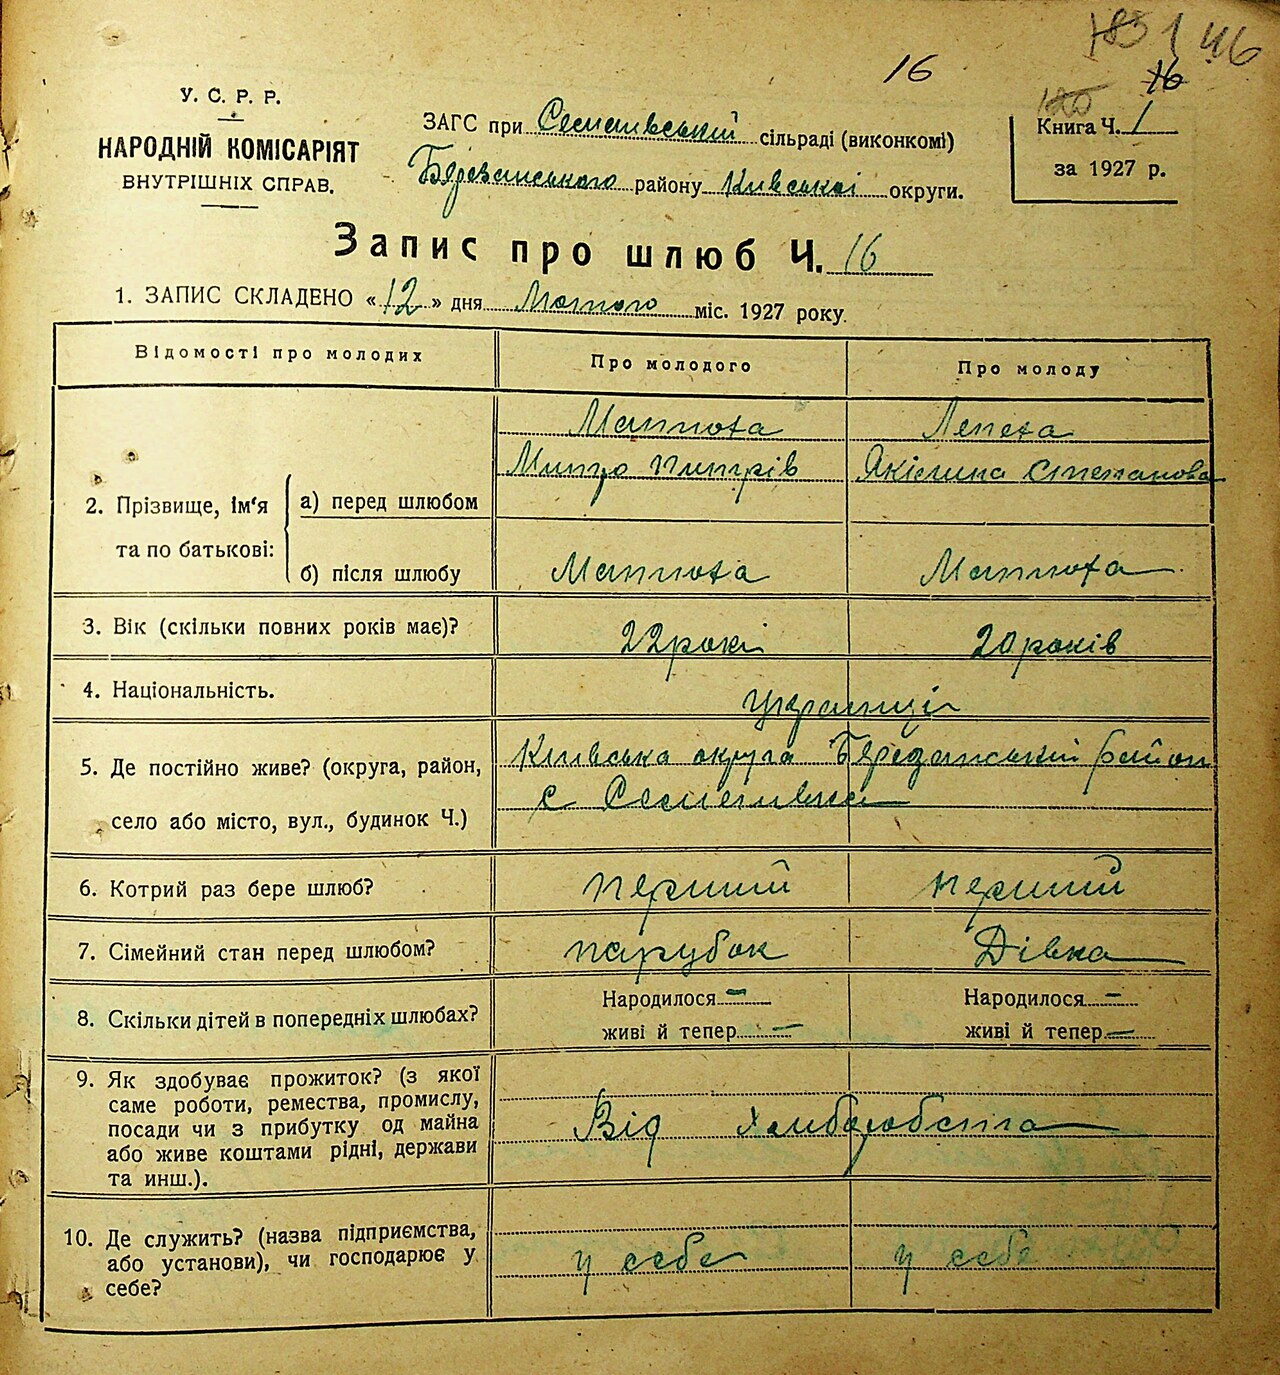 16
46
У. С. Р. Р.
НАРОДНІЙ КОМІСАРІЯТ
ВНУТРІШНІХ СПРАВ.
ЗАГС при Семенівській сільраді (виконкомі)
Березанського району Київської округи.
120 16
Книга Ч. 1
за 1927 р.
Запис про шлюб Ч. 16
1. ЗАПИС СКЛАДЕНО «12» дня Лютого міс. 1927 року.
Відомості про молодих
Про молодого
Про молоду
2. Прізвище, ім'я та по батькові:
а) перед шлюбом
Лепеха
Якілина Степанова
б) після шлюбу
3. Вік (скільки повних років має)?
22 роки
20 років
4. Національність.
Українці
5. Де постійно живе? (округа, район,
село або місто, вул., будинок Ч.)
Київська округа Березанський район
с Семенівка
6. Котрий раз бере шлюб?
перший
перший
7. Сімейний стан перед шлюбом?
парубок
Дівка
8. Скільки дітей в попередніх шлюбах?
Народилося —
живі й тепер —
Народилося —
живі й тепер —
9. Як здобуває прожиток? (з якої
саме роботи, ремества, промислу,
посади чи з прибутку од майна
або живе коштами рідні, держави
та инш.).
Від хліборобства
10. Де служить? (назва підприємства,
або установи), чи господарює у
себе?
у себе
у себе